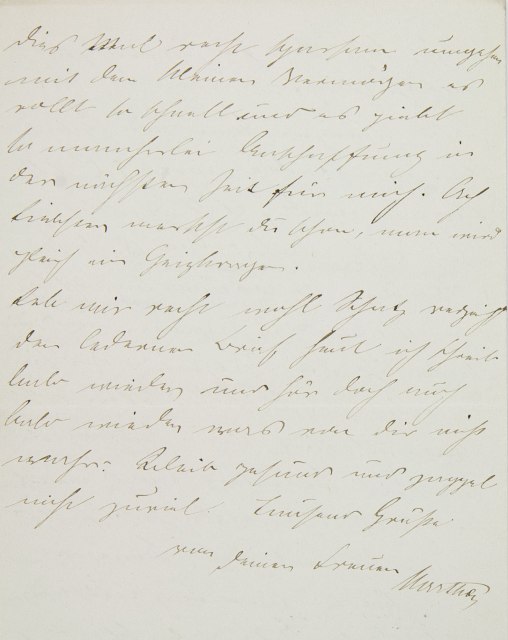 dies Mal recht sparsam umgehen
mit dem kleinen Vermögen es
rollt so schnell und es giebt
so mancherlei Anschaffung in
der nächsten Zeit für mich. Ach
Liebster merkst du schon, man wird
gleich ein Geizkragen.
Leb mir recht wohl Schatz verzeih
den ledernen Brief heut ich schreib
bald wieder und hör doch auch
bald wieder was von dir nicht
wahr? Bleib gesund und zappel
nicht zuviel. Tausend Grüße
von deiner treuen
Martha